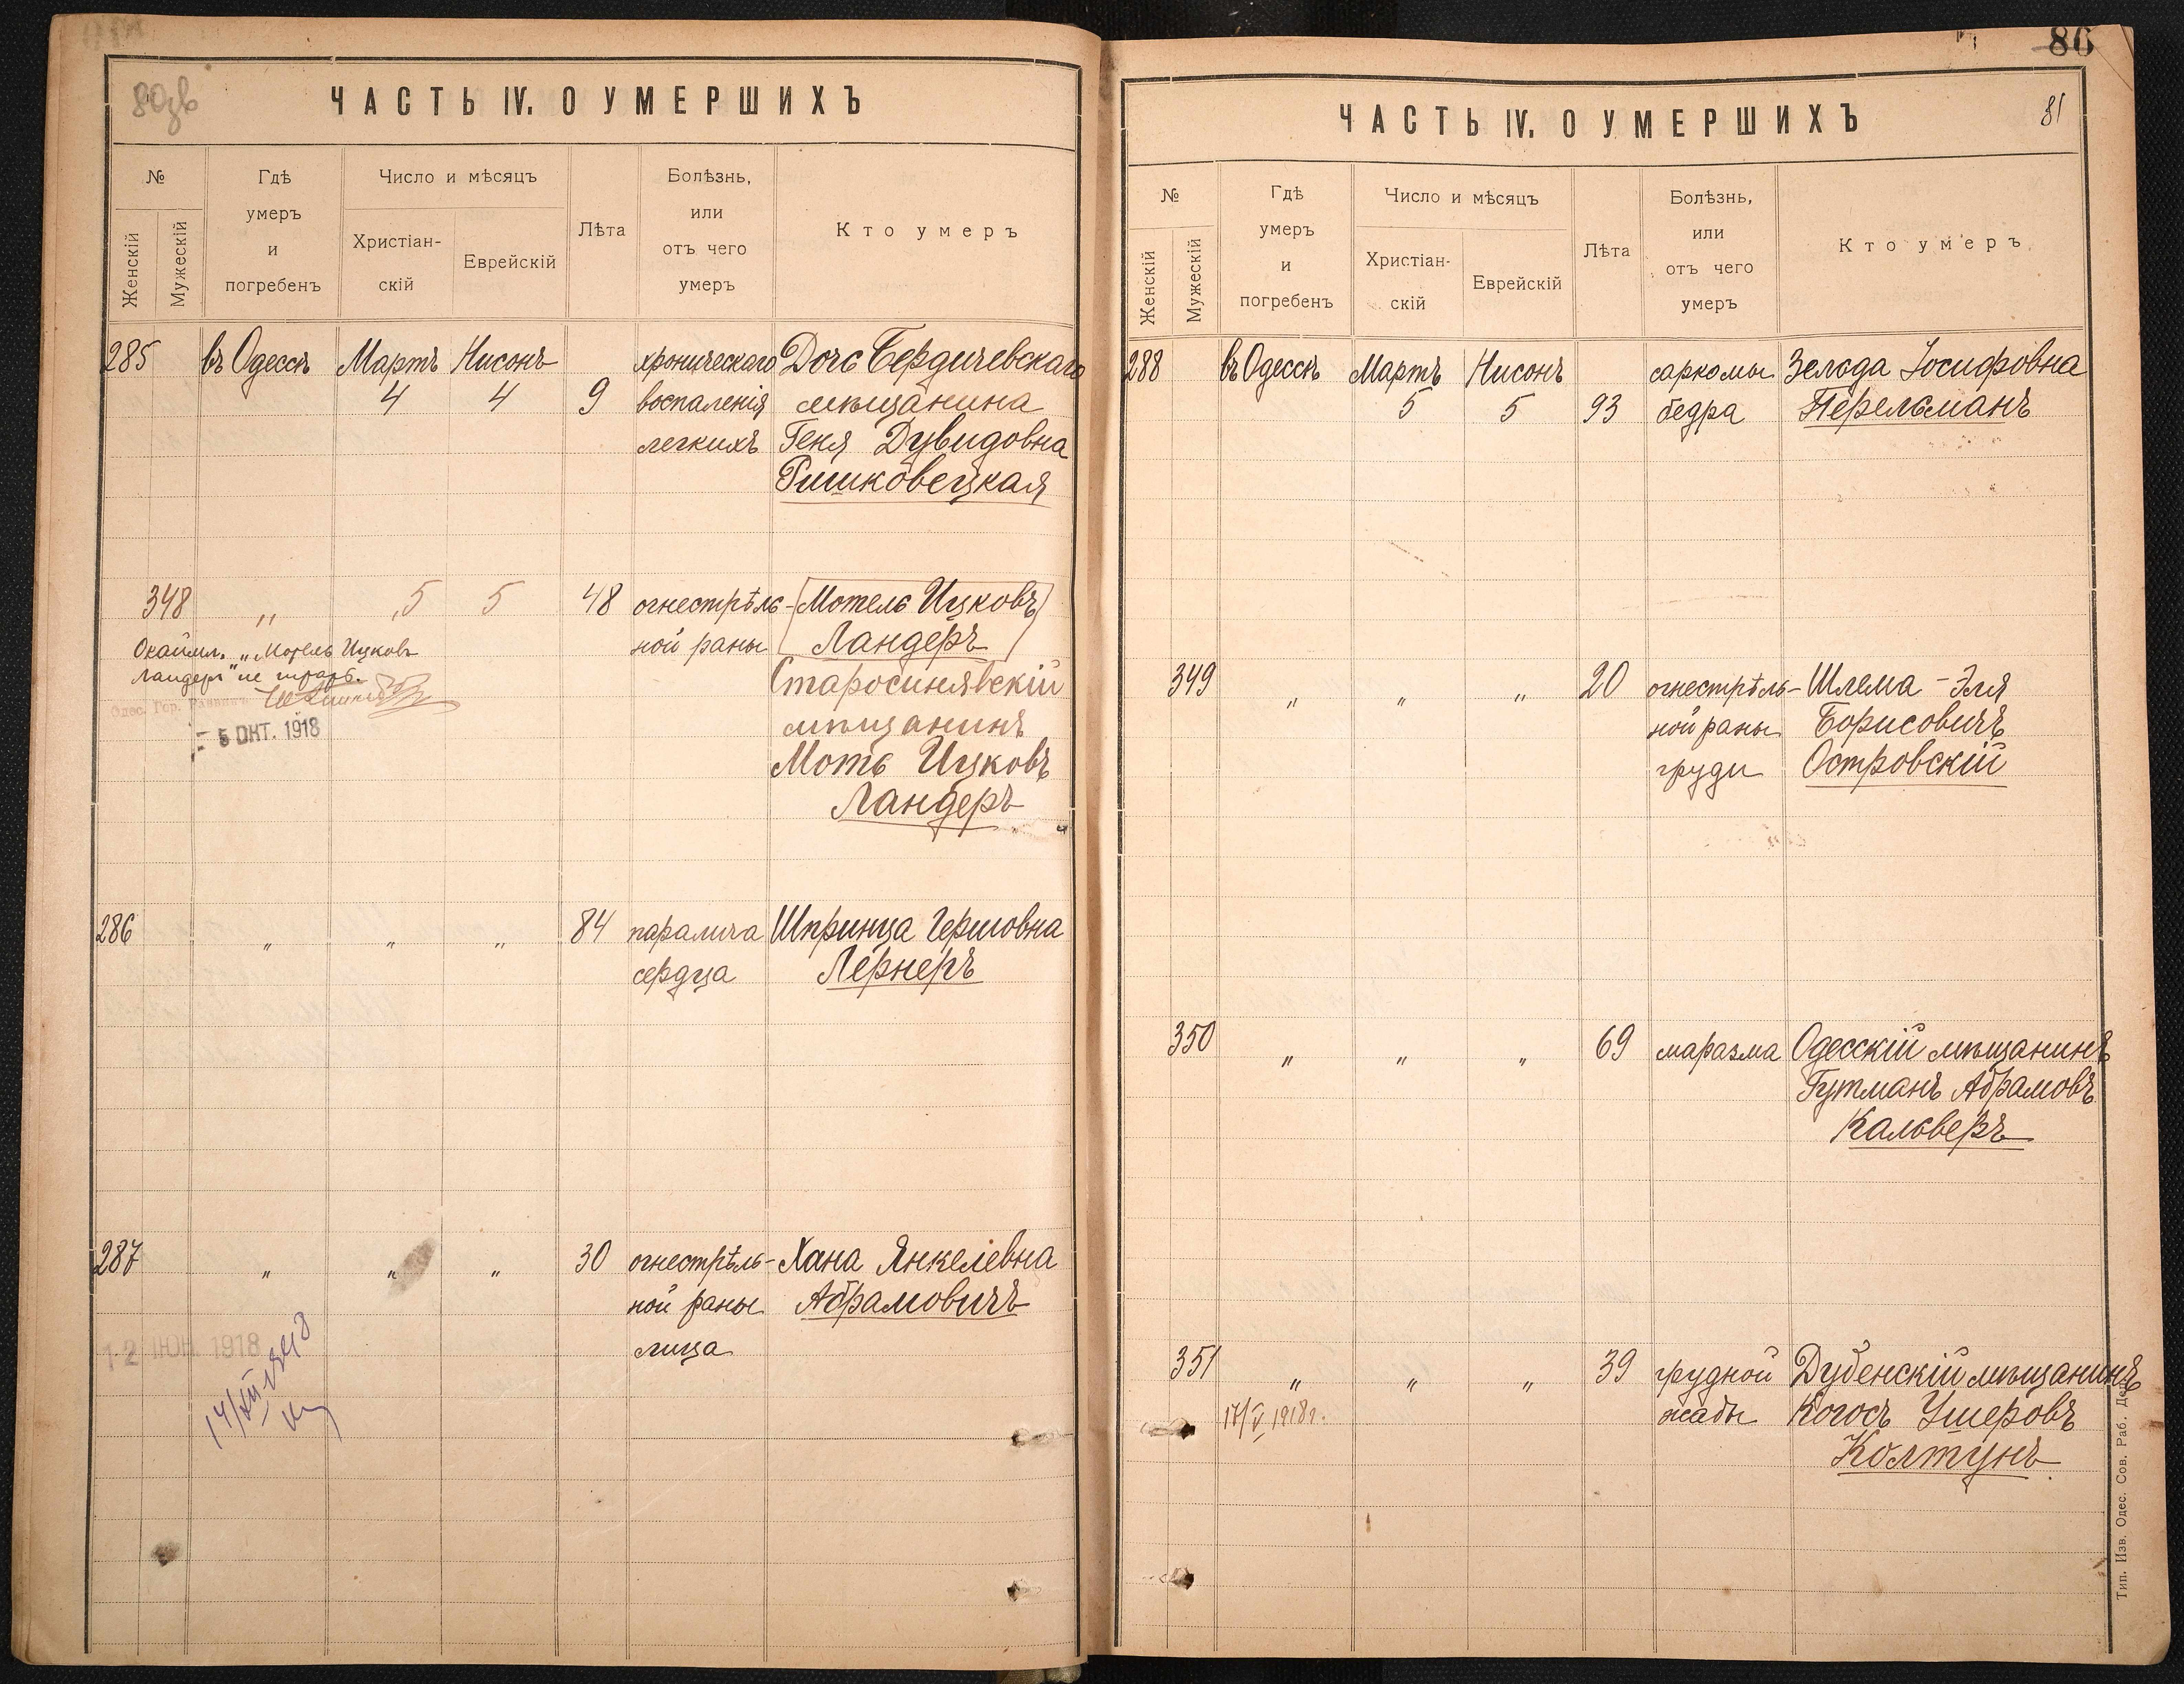 80зв
ЧАСТЬ IV. О УМЕРШИХЪ
№
Женскій
Мужескій
Гдѣ
умеръ
и
погребенъ
Число и мѣсяцъ
Христіан-
скій
Еврейскій
Лѣта
Болѣзнь,
или
отъ чего
умеръ
Кто умеръ
285 въ Одессѣ Мартъ Нисонъ хроническаго Дочь Бердичевскаго
4 4 9 воспаленія мѣщанина
легкихъ Геня Дувидовна
Ришковецкая
348 „ 5 5 48 огнестрѣль- Мотель Ицковъ
ной раны Ландеръ
Старосинявскій
мѣщанинъ
Моть Ицковъ
Ландеръ
Окаймл. „Мотель Ицковъ
Ландеръ" не читать.
Одес. Гор. Раввинъ
5 ОКТ. 1918
286 „ „ „ 84 паралича Шпринца Гершовна
сердца Лернеръ
287 „ „ „ 30 огнестрѣль- Хана Янкелевна
ной раны Абрамовичъ
лица
12 ІЮН. 1918
80
81
ЧАСТЬ IV. О УМЕРШИХЪ
№
Женскій
Мужескій
Гдѣ
умеръ
и
погребенъ
Число и мѣсяцъ
Христіан-
скій
Еврейскій
Лѣта
Болѣзнь,
или
отъ чего
умеръ
Кто умеръ
288 въ Одессѣ Мартъ Нисонъ саркомы Зелода Іосифовна
5 5 93 бедра Перельманъ
349 „ „ „ 20 огнестрѣль- Шлема-Эля
ной раны Борисовичъ
груди Островскій
350 „ „ „ 69 маразма Одесскій мѣщанинъ
Гутманъ Абрамовъ
Кальверъ
351 „ „ „ 39 грудной Дубенскій мѣщанинъ
17/V 1918г. жабы Когосъ Ушеровъ
Колтунъ
Тип. Изв. Одес. Сов. Раб. Деп.